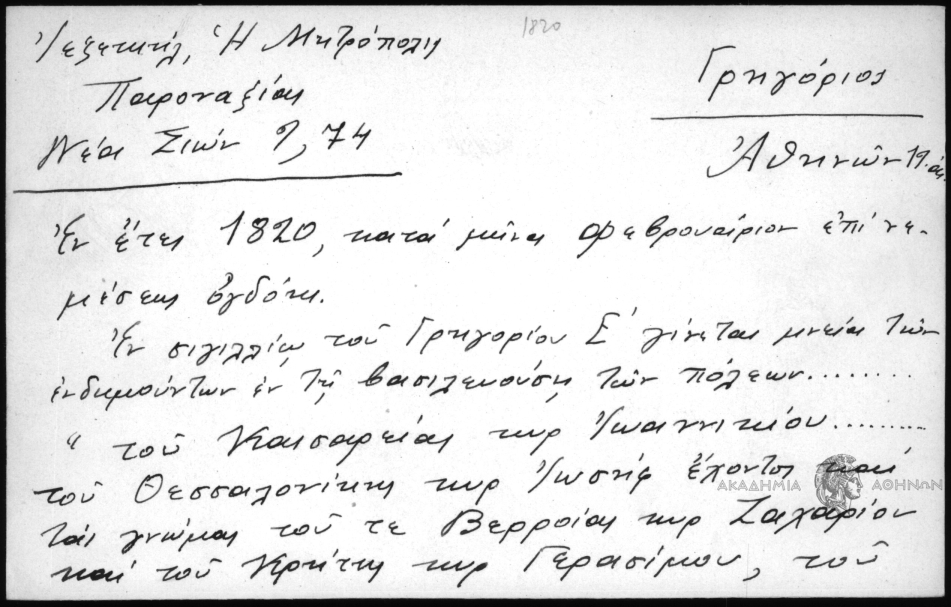 1820
Ἰεζεκιήλ, Ἡ Μητρόπολις
Παροναξίας
Νέα Σιών 9, 74
Γρηγόριος
Ἀθηνῶν
Ἐν ἔτει 1820, κατά μῆνα Φεβρουάριον ἐπινε-
μέσεως ὀγδόης.
Ἐν σιγιλλίῳ τοῦ Γρηγορίου Ε' γίνεται μνεία τῶν
ἐνδημούντων ἐν τῇ βασιλευούσῃ τῶν πόλεων........
" τοῦ Καισαρείας κυρ Ἰωαννικίου.........
τοῦ Θεσσαλονίκης κυρ Ἰωσήφ ἔχοντος καί
τάς γνώμας τοῦ τε Βερροίας κυρ Ζαχαρίου
καί τοῦ Κρήτης κυρ Γερασίμου, τοῦ
ΑΚΑΔΗΜΙΑ ΑΘΗΝΩΝ